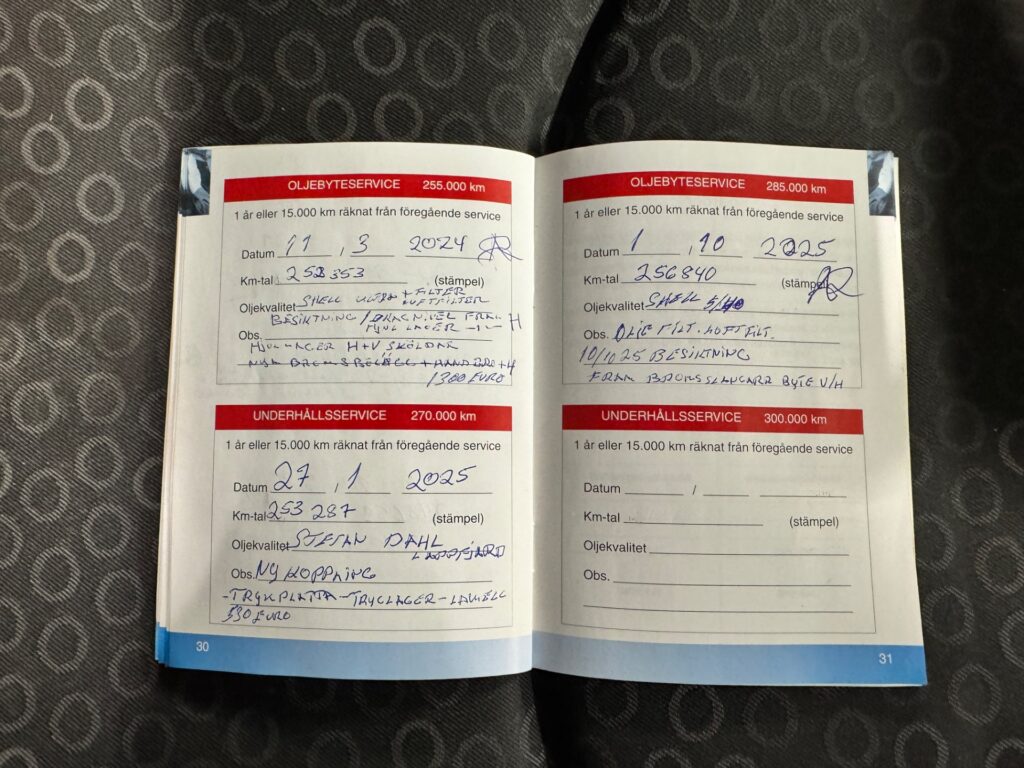 OLJEBYTESERVICE 255.000 km
1 år eller 15.000 km räknat från föregående service
Datum 11 , 3 2024
Km-tal 252353
(stämpel)
Oljekvalitet SHELL ULTRA + FILTER
LUFTFILTER
BESIKTNING / FRAM H
Obs. HJUL LAGER
HJULLAGER H+V SKÖLDAR
NYA BROMSBELÄGG + HANDBRO +H
1300 EURO
UNDERHÅLLSSERVICE 270.000 km
1 år eller 15.000 km räknat från föregående service
Datum 27 , 1 2025
Km-tal 253 287
(stämpel)
Oljekvalitet STEFAN DAHL
LAPPFJÄRD
Obs. NY KOPPLING
-TRYKPLATTA-TRYCLAGER-LAMELL
530 EURO
30
OLJEBYTESERVICE 285.000 km
1 år eller 15.000 km räknat från föregående service
Datum 1 , 10 2025
Km-tal 256840
(stämpel)
Oljekvalitet SHELL 5/40
Obs. OLJE FILT. LUFTFILT.
10/10 25 BESIKTNING
FRAM BROMSSLANGARR BYTE V/H
UNDERHÅLLSSERVICE 300.000 km
1 år eller 15.000 km räknat från föregående service
Datum /
Km-tal
(stämpel)
Oljekvalitet
Obs.
31